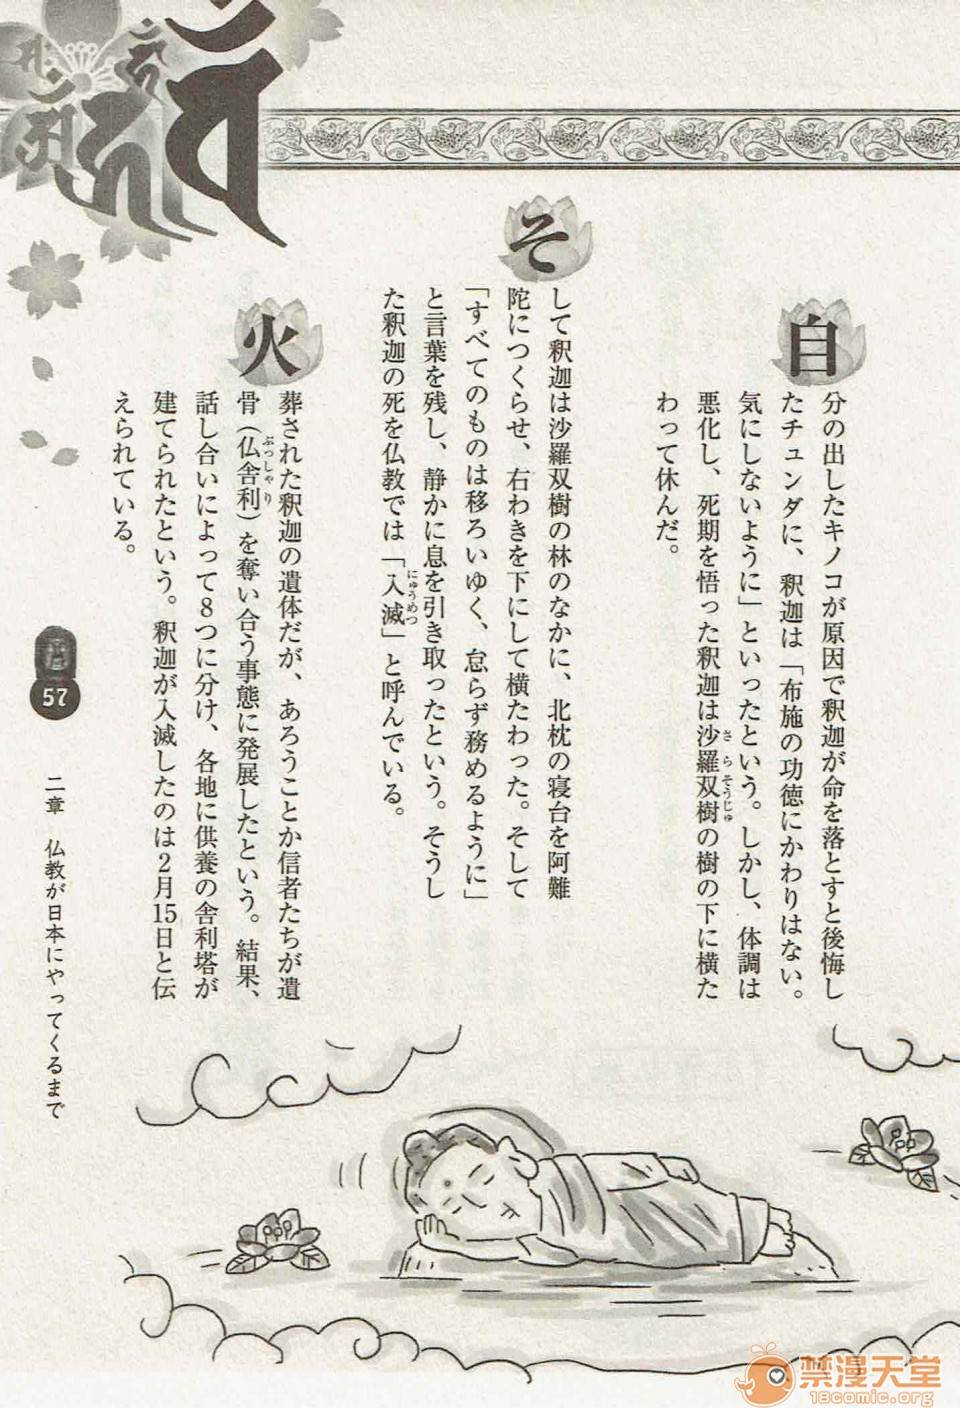 自分の出したキノコが原因で釈迦が命を落とすと後悔し
たチュンダに、釈迦は「布施の功徳にかわりはない。
気にしないように」といったという。しかし、体調は
悪化し、死期を悟った釈迦は沙羅双樹の樹の下に横た
さらそうじゅ
わって休んだ。
そして釈迦は沙羅双樹の林のなかに、北枕の寝台を阿難
陀につくらせ、右わきを下にして横たわった。そして
「すべてのものは移ろいゆく、怠らず務めるように」
と言葉を残し、静かに息を引き取ったという。そうし
た釈迦の死を仏教では「入滅」と呼んでいる。
にゅうめつ
火葬された釈迦の遺体だが、あろうことか信者たちが遺
骨（仏舎利）を奪い合う事態に発展したという。結果、
ぶっしゃり
話し合いによって8つに分け、各地に供養の舎利塔が
建てられたという。釈迦が入滅したのは2月15日と伝
えられている。
57
二章 仏教が日本にやってくるまで
禁漫天堂
18comic.org